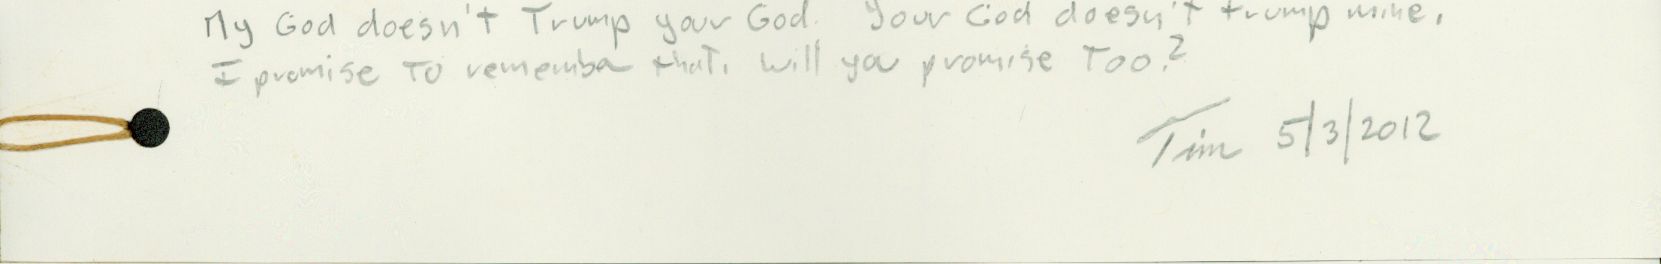 My God doesn't Trump your God. Your God doesn't trump mine.
I promise to remember that. Will you promise Too?
Tim 5/3/2012